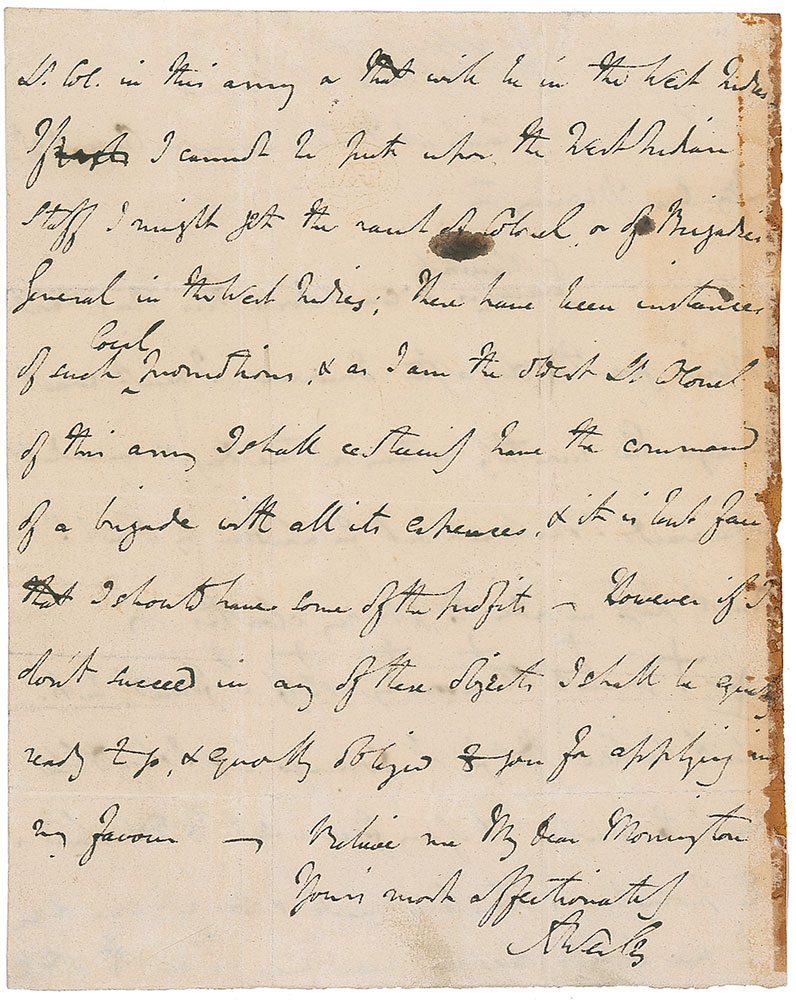 Lt. Col. in this army or that will be in the West Indies.
If I cannot be put upon the West Indian
Staff I might get the rank of Colonel, or of Brigadier
General in the West Indies; there have been instances
of such local promotions, & as I am the oldest Lt. Colonel
of this army I shall certainly have the command
of a brigade with all its expenses, & it is but fair
that I should have some of the profits — However if I
don't succeed in any of these objects I shall be equally
ready to go, & equally obliged to you for applying in
my favour — Believe me My dear Mornington
Yours most affectionately
A Wesley